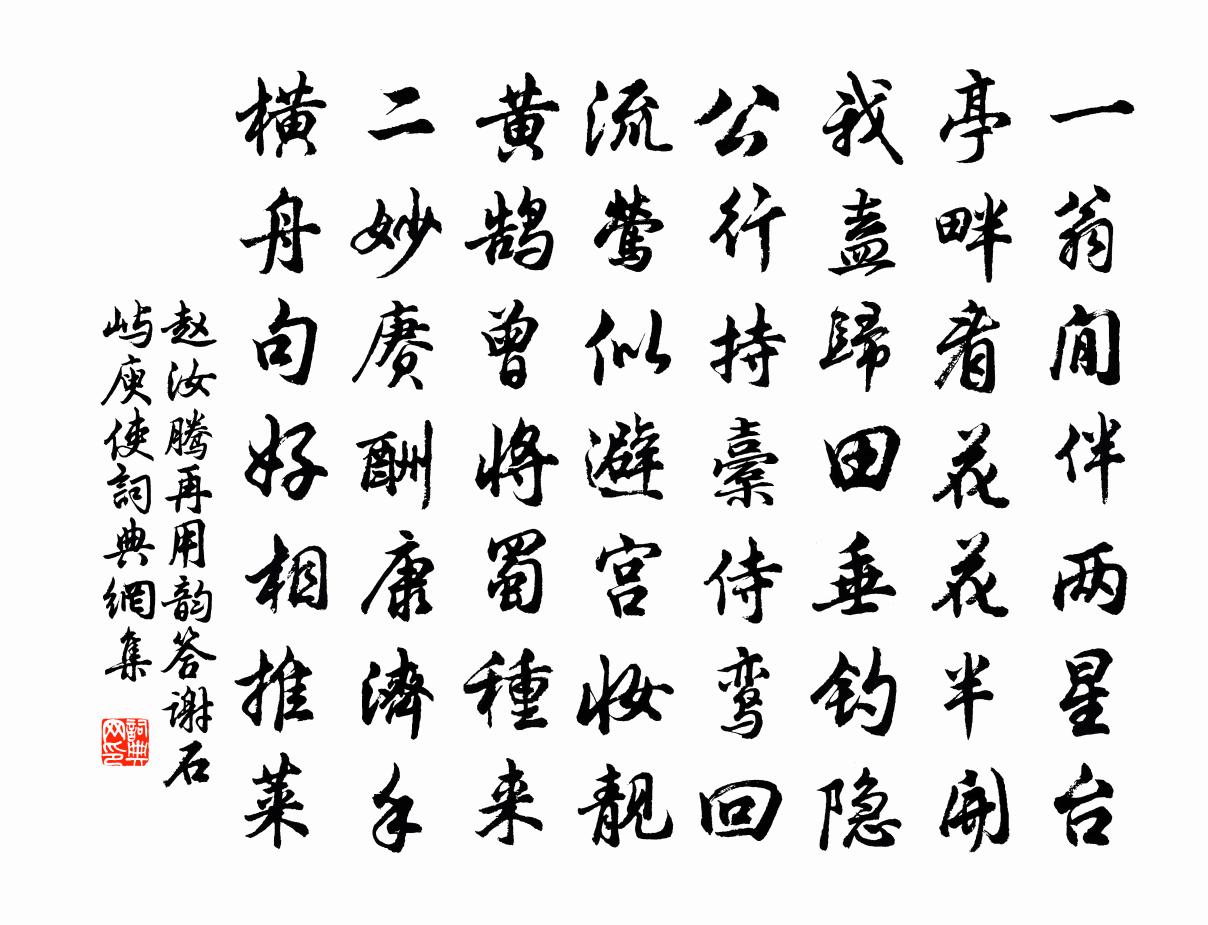 一翁闲伴两星台
亭畔看花花半開
我盍歸田垂钓隐
公行持橐侍鸾回
流莺似避宫妆靓
黄鹄曾将蜀種来
二妙赓酬康濟手
橫舟句好相推萊
赵汝腾再用韵答谢石
屿庾使詞典網集
詞典
网印